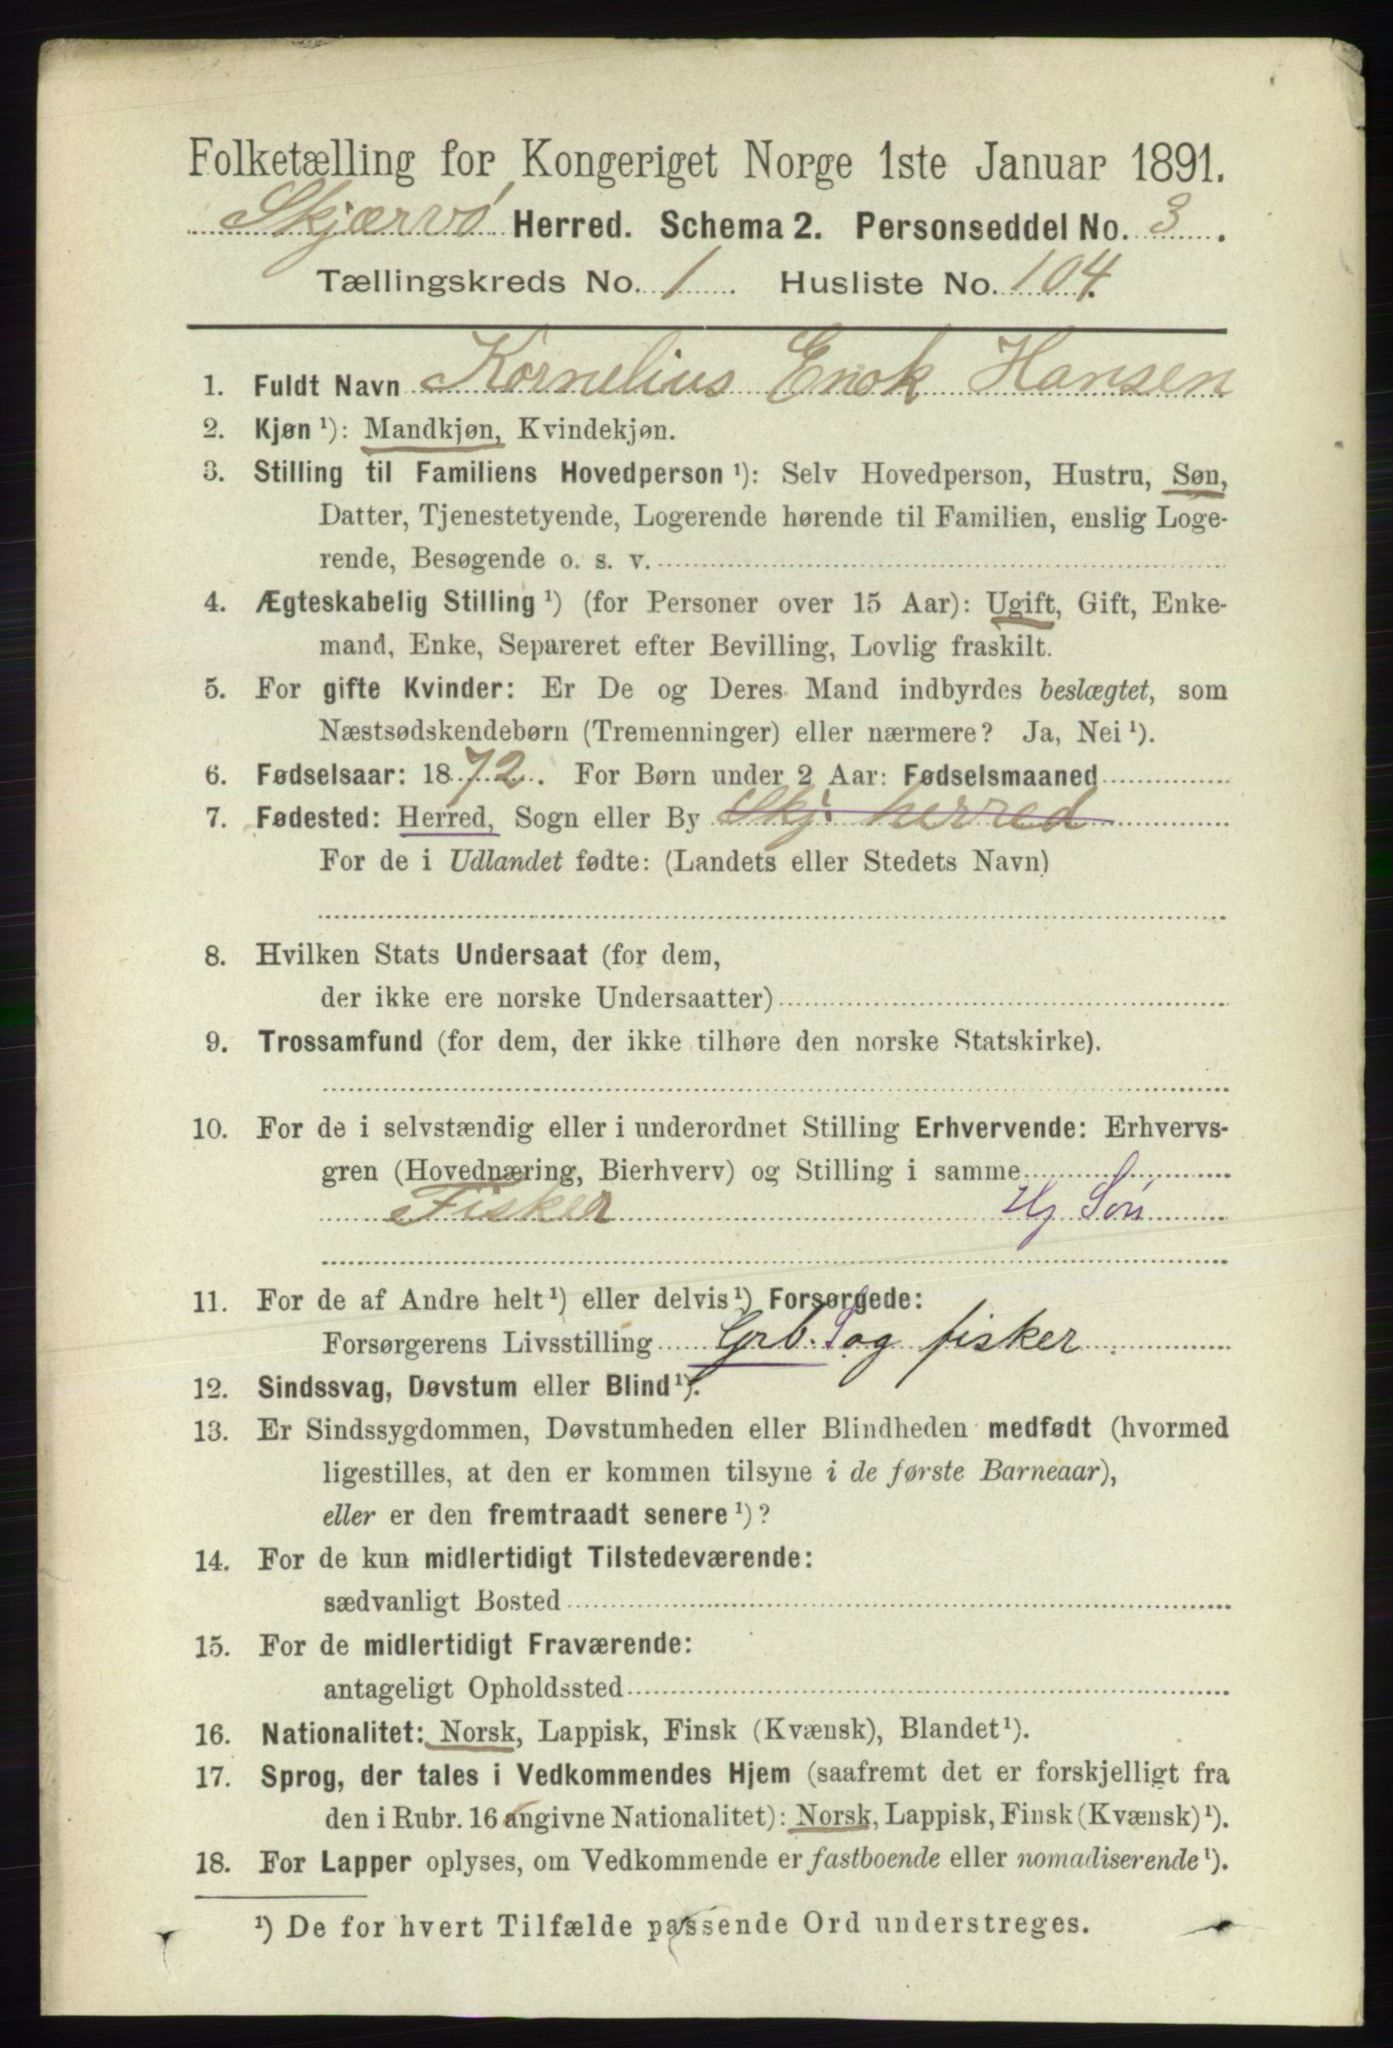 Folketælling for Kongeriget Norge 1ste Januar 1891.
Skjærvø Herred. Schema 2. Personseddel No. 3.
Tællingskreds No. 1 Husliste No. 104.
1. Fuldt Navn Kornelius Enok Hansen
2. Kjøn ¹): Mandkjøn, Kvindekjøn.
3. Stilling til Familiens Hovedperson ¹): Selv Hovedperson, Hustru, Søn,
Datter, Tjenestetyende, Logerende hørende til Familien, enslig Loge-
rende, Besøgende o. s. v.
4. Ægteskabelig Stilling ¹) (for Personer over 15 Aar): Ugift, Gift, Enke-
mand, Enke, Separeret efter Bevilling, Lovlig fraskilt.
5. For gifte Kvinder: Er De og Deres Mand indbyrdes beslægtet, som
Næstsødskendebørn (Tremenninger) eller nærmere? Ja, Nei ¹).
6. Fødselsaar: 1872. For Børn under 2 Aar: Fødselsmaaned
7. Fødested: Herred, Sogn eller By Skj. herred
For de i Udlandet fødte: (Landets eller Stedets Navn)
8. Hvilken Stats Undersaat (for dem,
der ikke ere norske Undersaatter)
9. Trossamfund (for dem, der ikke tilhøre den norske Statskirke).
10. For de i selvstændig eller i underordnet Stilling Erhvervende: Erhvervs-
gren (Hovednæring, Bierhverv) og Stilling i samme
Fisker Hj Søn
11. For de af Andre helt ¹) eller delvis ¹) Forsørgede:
Forsørgerens Livsstilling Grb. S og fisker
12. Sindssvag, Døvstum eller Blind ¹).
13. Er Sindssygdommen, Døvstumheden eller Blindheden medfødt (hvormed
ligestilles, at den er kommen tilsyne i de første Barneaar),
eller er den fremtraadt senere ¹)?
14. For de kun midlertidigt Tilstedeværende:
sædvanligt Bosted
15. For de midlertidigt Fraværende:
antageligt Opholdssted
16. Nationalitet: Norsk, Lappisk, Finsk (Kvænsk), Blandet ¹).
17. Sprog, der tales i Vedkommendes Hjem (saafremt det er forskjelligt fra
den i Rubr. 16 angivne Nationalitet): Norsk, Lappisk, Finsk (Kvænsk) ¹).
18. For Lapper oplyses, om Vedkommende er fastboende eller nomadiserende ¹).
¹) De for hvert Tilfælde passende Ord understreges.